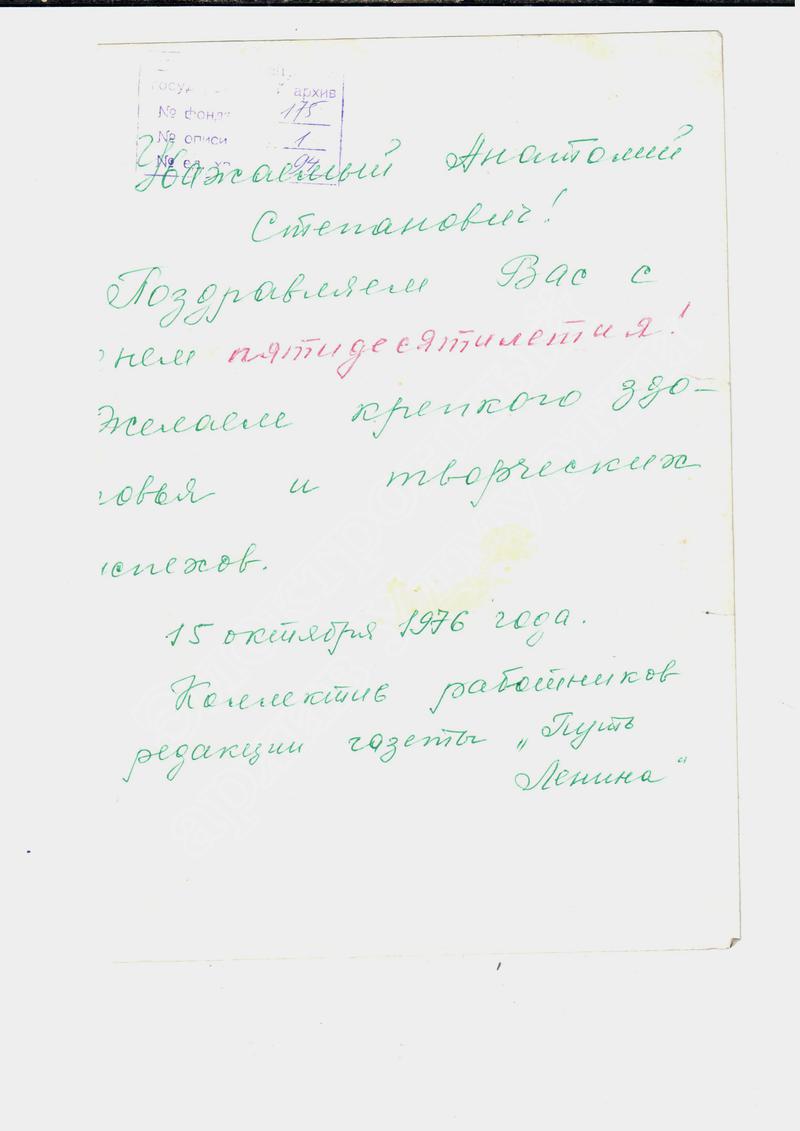 архив
№ фонда 175
№ описи 1
№ ед. хр. 94
Уважаемый Анатолий
Степанович!
Поздравляем Вас с
нем пятидесятилетия!
Желаем крепкого здо-
овья и творческих
спехов.
15 октября 1976 года.
Коллектив работников
редакции газеты „Путь
Ленина"